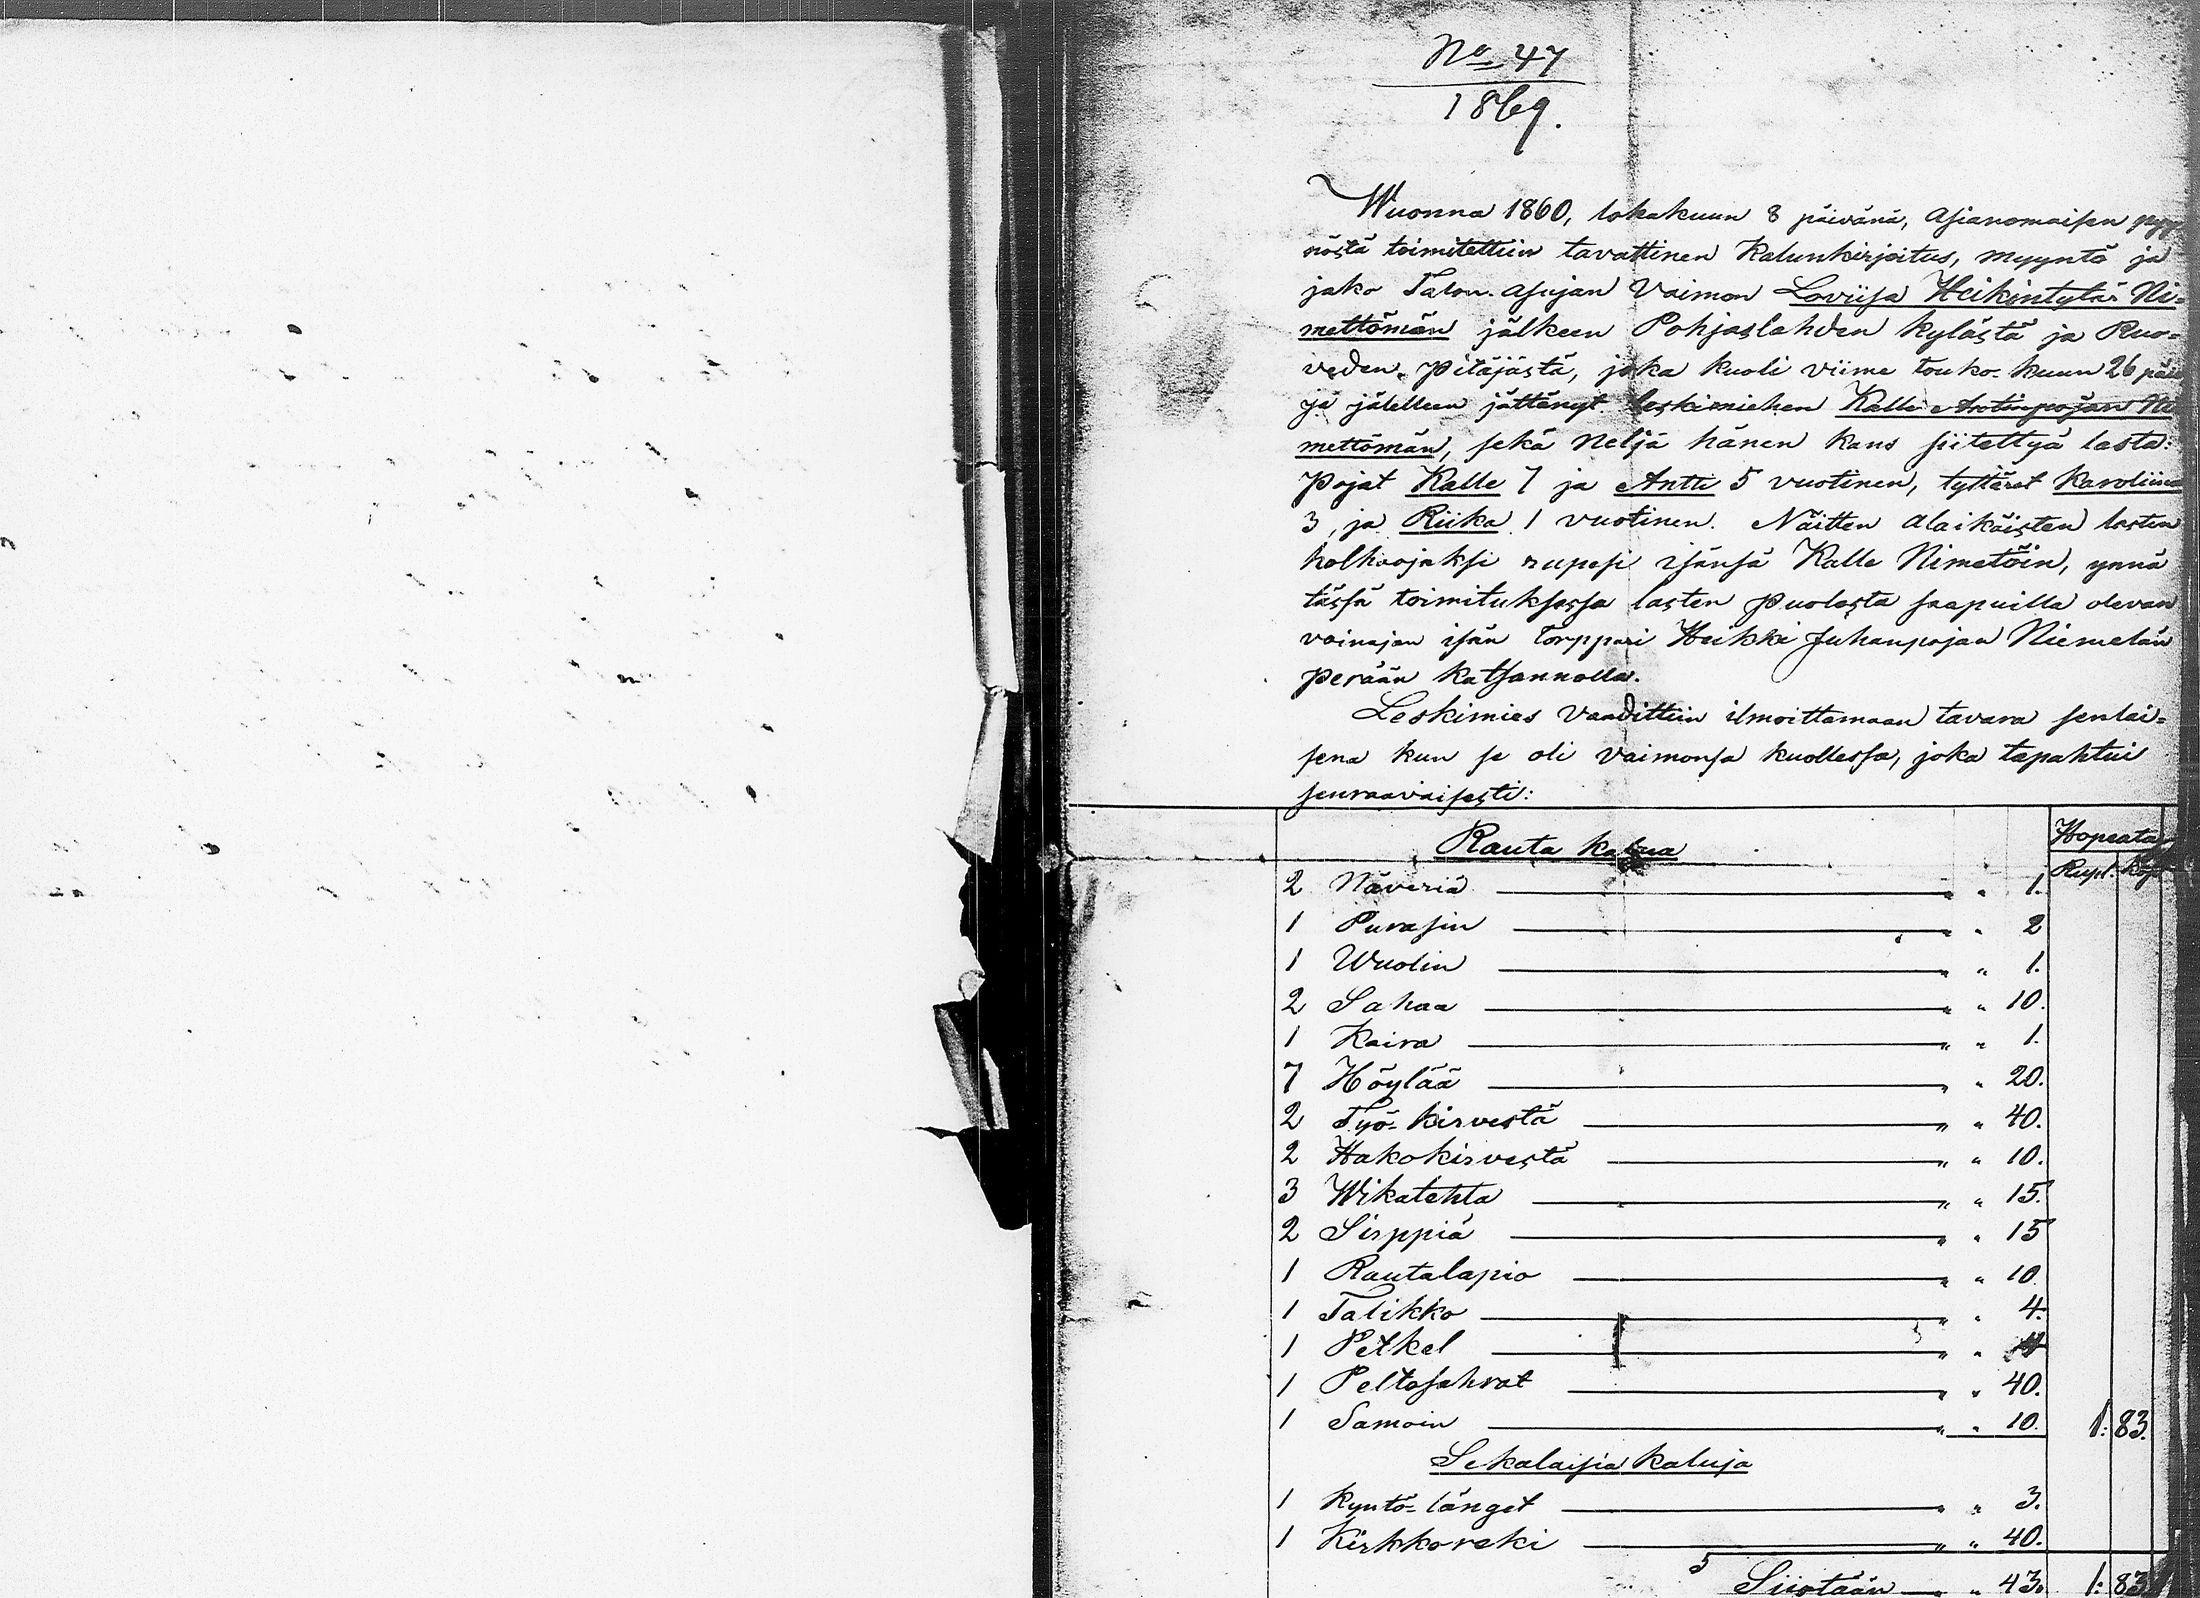 No 47
1869.
Wuonna 1860, lokakuun 8 päivänä, Asianomaisen pyy
nöstä toimitettiin tavattinen Kalunkirjoitus, myyntö ja
jako Talon-asujan Vaimon Loviisa Heikintytär Ni=
mettömän jälkeen Pohjaslahden kylästä ja Ruo=
veden pitäjästä, joka kuoli viime touko-kuun 26 päiv
ja jälelleen jättänyt leskimiehen Kalle Antinpojan Ni
mettömän, sekä neljä hänen kans siitettyä lasta:
Pojat Kalle 7 ja Antti 5 vuotinen, tyttäret Karoliina
3, ja Riika 1 vuotinen. Näitten alaikäisten lasten
holhoojaksi rupesi isänsä Kalle Nimetöin, ynnä
tässä toimituksessa lasten puolesta saapuilla olevan
vainajan isän torppari Heikki Juhanpojan Niemelän
perään katsannolla.
Leskimies vaadittiin ilmoittamaan tavara senlai=
sena kun se oli vaimonsa kuollessa, joka tapahtui
seuraavaisesti:
Rauta kalua Hopeata
Rupl. Kop
2 Näveriä " " 1.
1 Purasin " " 2
1 Wuolin " " 1.
2 Sahaa " " 10.
1 Kaira " " 1.
7 Höylää " " 20.
2 Työ-kirvestä " " 40.
2 Hakokirvestä " " 10.
3 Wikatehta " " 15.
2 Sirppiä " " 15
1 Rautalapio " " 10
1 Talikko " " 4.
1 Petkel " "
1 Peltosahrat " " 40.
1 Samoin " " 10. 1: 83.
Sekalaisia kaluja
1 Kyntö-länget " " 3.
1 Kirkkoreki " " 40.
5 Siirtään " 43. 1: 83